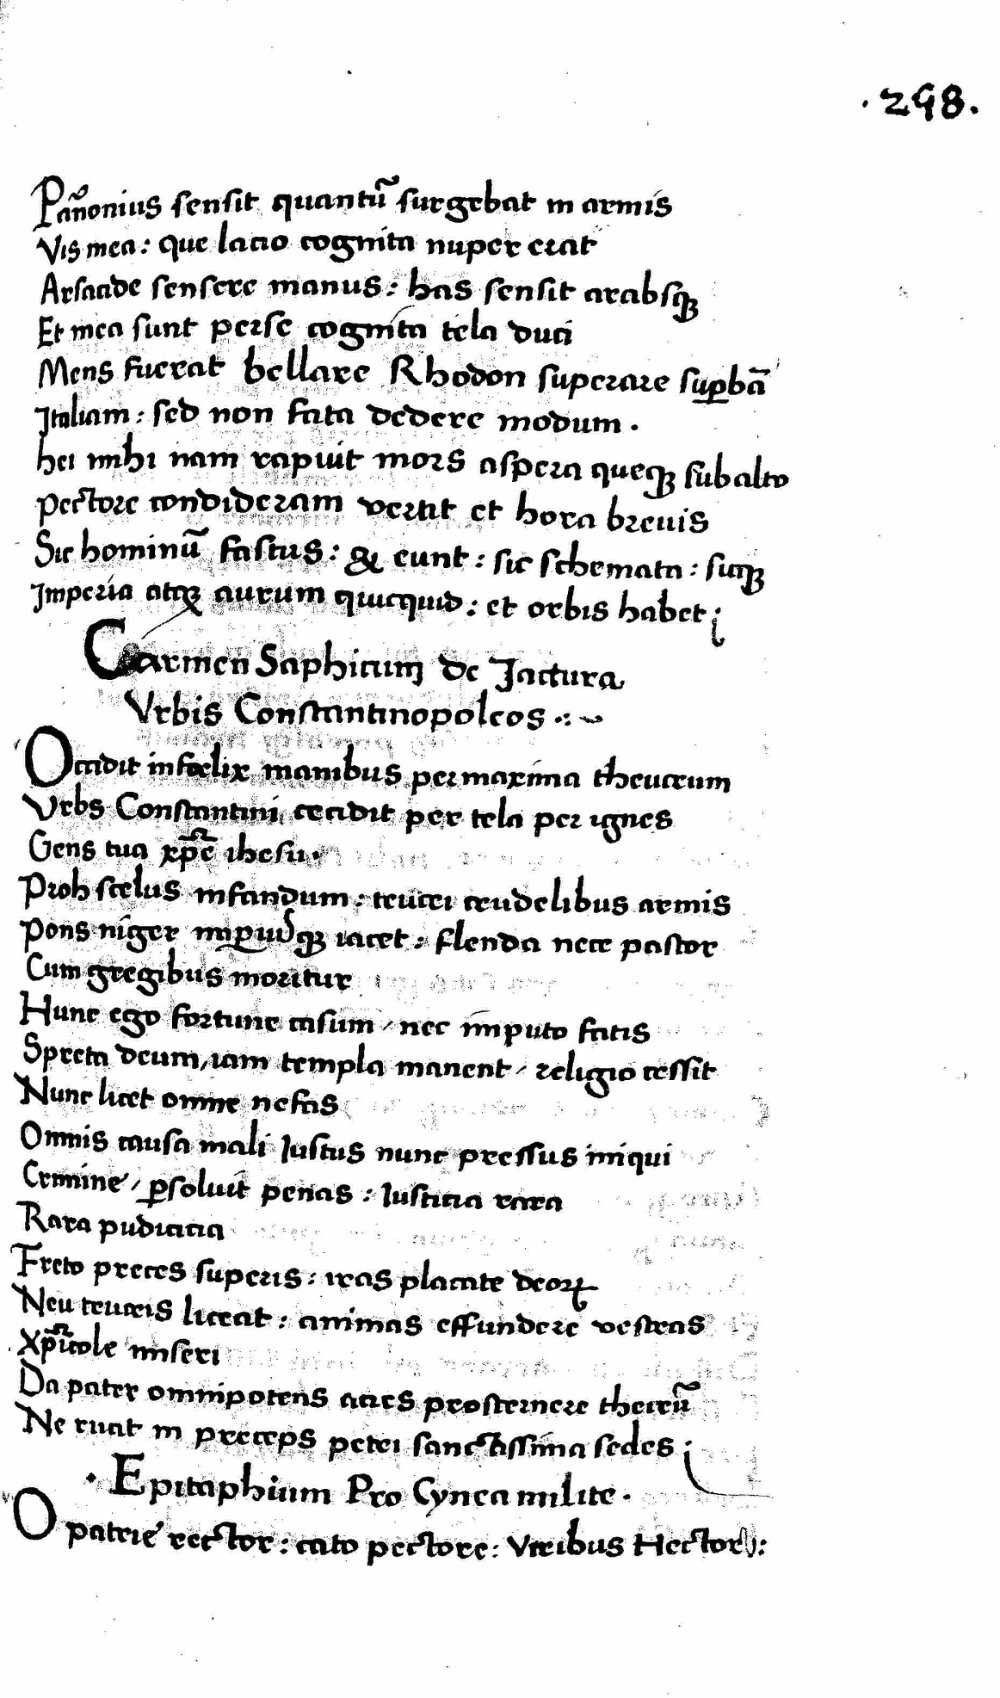 · 298 ·
Pan̄onius sensit quantū surgebat in armis
Vis mea : que lacio cognita nuper erat
Arsacide sensere manus : has sensit arabsqꝫ
Et mea sunt perse cognita tela duci
Mens fuerat bellare Rhodon superare suꝑbā
Italiam : sed non fata dedere modum ·
hei mihi nam rapuit mors aspera queqꝫ sub alto
pectore condideram vertit et hora breuis
Sic hominū fastus : & eunt : sic schemata : sicqꝫ
Imperia atqꝫ aurum quicquid : et orbis habet ;
Carmen Saphicum de Jactura
Vrbis Constantinopoleos ·:~
Occidit infoelix manibus per maxima theucrum
Vrbs Constantini cecidit per tela per ignes
Gens tua xp̄e ihesu ·
Proh scelus infandum : teucri crudelibus armis
Pons niger iacet : flenda nece pastor
Cum gregibus moritur
Hunc ego fortune casum / nec imputo fatis
Spreta deum / iam templa manent / religio cessit
Nunc licet omne nefas
Omnis causa mali Iustus nunc pressus iniqui
Crimine / ꝑsoluit penas : Iusticia rara
Rara pudicicia
Freto preces superis : iras placate deoꝝ
Neu teucris liceat : animas effundere vestras
Xp̄icole miseri
Da pater omnipotens acies prosternere theucrū
Ne ruat in preceps petri sanctissima sedes ;
· Epitaphium Pro Cynea milite ·
O patrie rector : cato pectore : Viribus Hector :